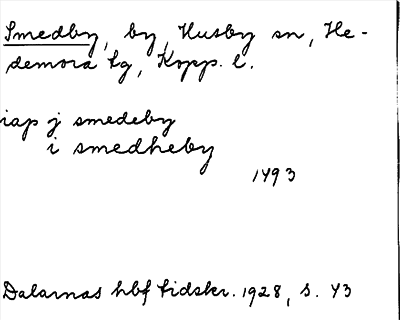 Smedby, by, Husby sn, He-
demora tg, Kopp. l.
iap j smedeby
i smedheby
1493
Dalarnas hbf tidskr. 1928, s. 43